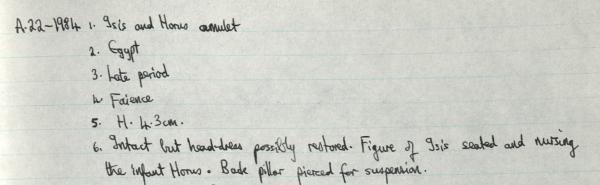 A.22-1984 1. Isis and Horus amulet
2. Egypt
3. Late period
4. Faience
5. H. 4.3cm.
6. Intact but head-dress possibly restored. Figure of Isis seated and nursing
the infant Horus. Back pillar pierced for suspension.